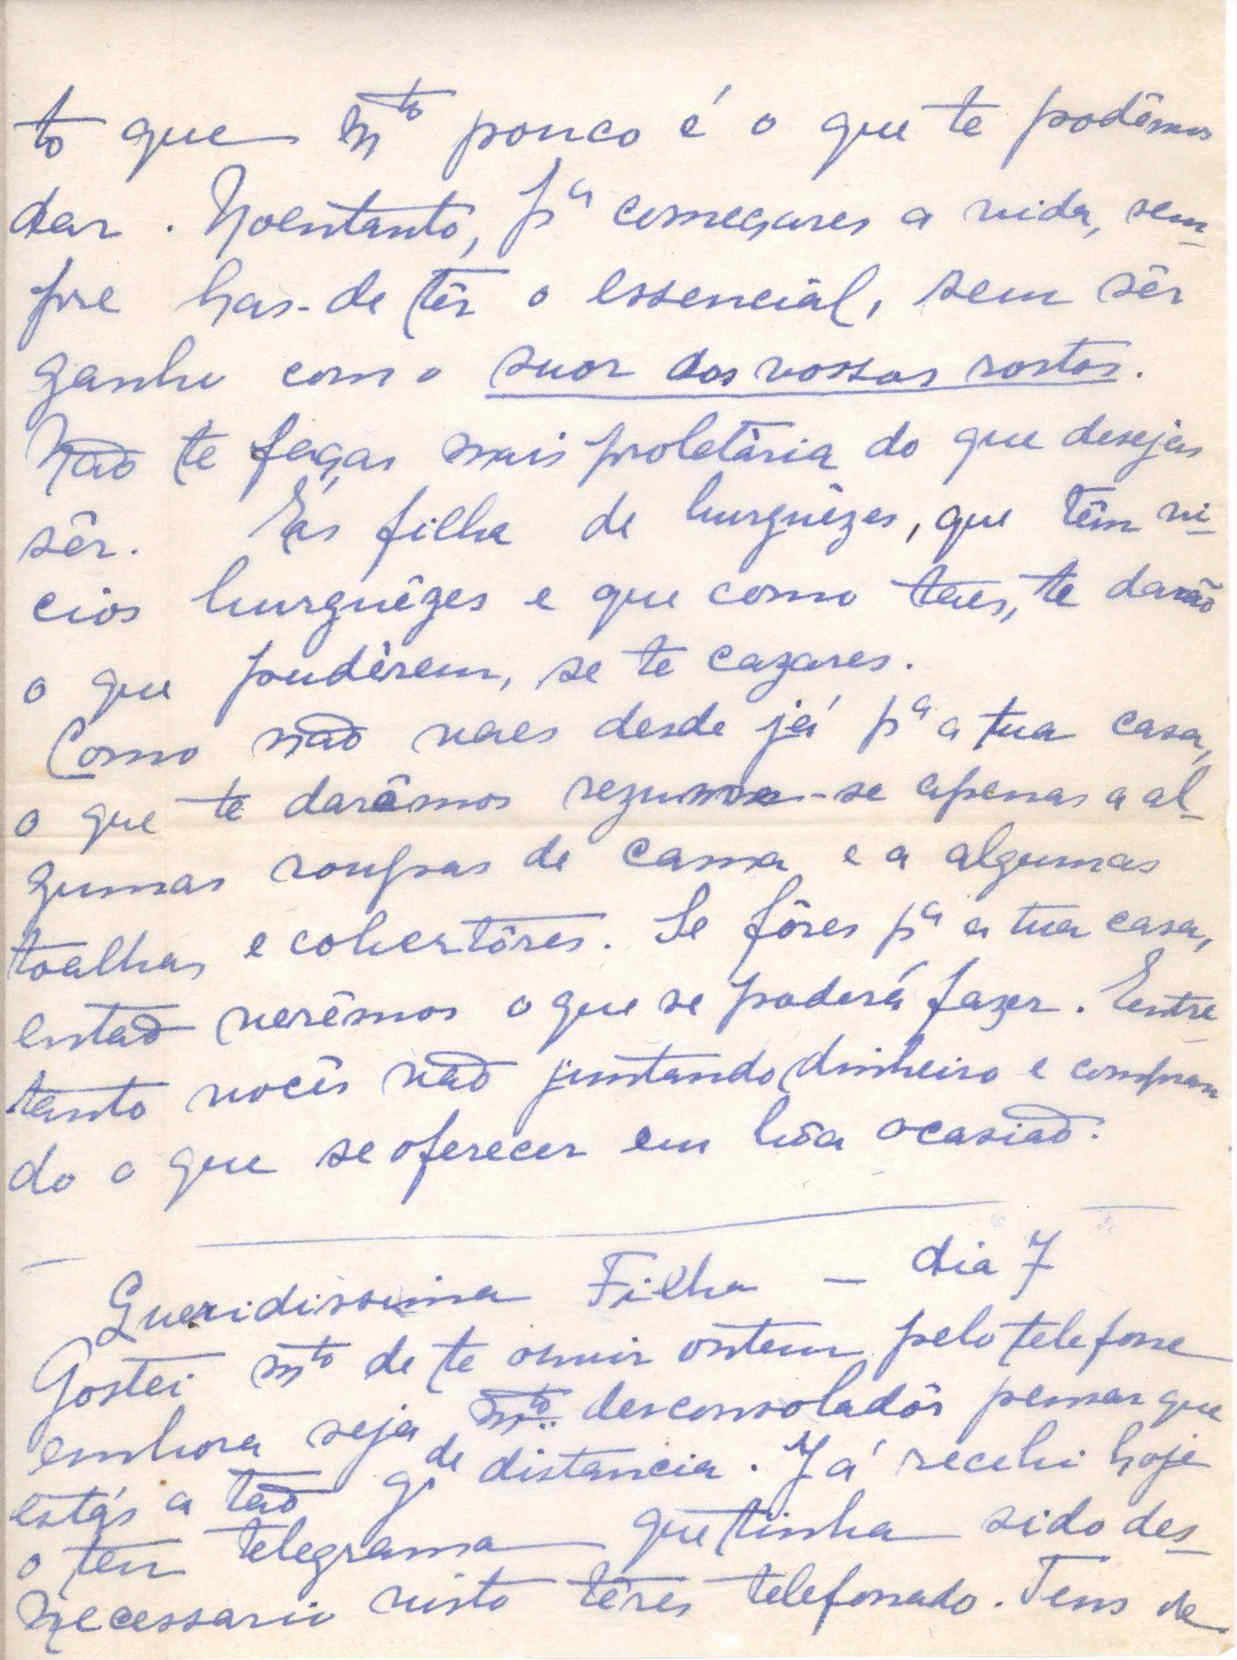 to que mto pouco é o que te podêmos
dar. Noentanto, pa começares a vida, sem-
pre has-de têr o essencial, sem sêr
ganho com o suor dos vossos rostos.
Não te faças mais proletária do que desejas
sêr. És filha de burguêzes, que têm vi-
cios burguêzes e que como taes, te darão
o que pudérem, se te cazares.
Como não vaes desde já pa a tua casa,
o que te darêmos rezume-se apenas a al-
gumas roupas de cama e a algumas
toalhas e cobertôres. Se fôres pa a tua casa,
então verêmos o que se poderá fazer. Entre-
tanto vocês vão juntando dinheiro e compran
do o que se oferecer em bôa ocasião.
Queridissima Filha — dia 7
Gostei mto de te ouvir ontem pelo telefone
embora seja mto desconsoladôr pensar que
estás a tão gde distancia. Já recebi hoje
o teu telegrama que tinha sido des-
necessario visto têres telefonado. Tens de